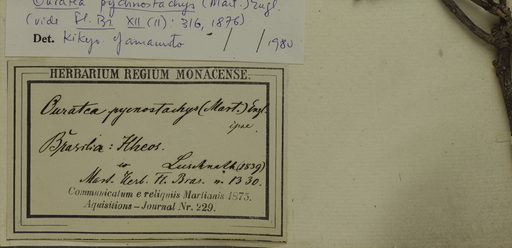 Ouratea pycnostachys (Mart.) Engl.
(vide Fl. Br. XII (II): 316, 1876)
Det. Kikyo Yamamoto / / 1980
HERBARIUM REGIUM MONACENSE.
Ouratea pycnostachys (Mart.) Engl.
ipse.
Brasilia: Ilheos.
Luschnath (1839)
Mart. Herb. Fl. Bras. n. 1330.
Communicatum e reliquiis Martianis 1873.
Aquisitions - Journal Nr. 229.